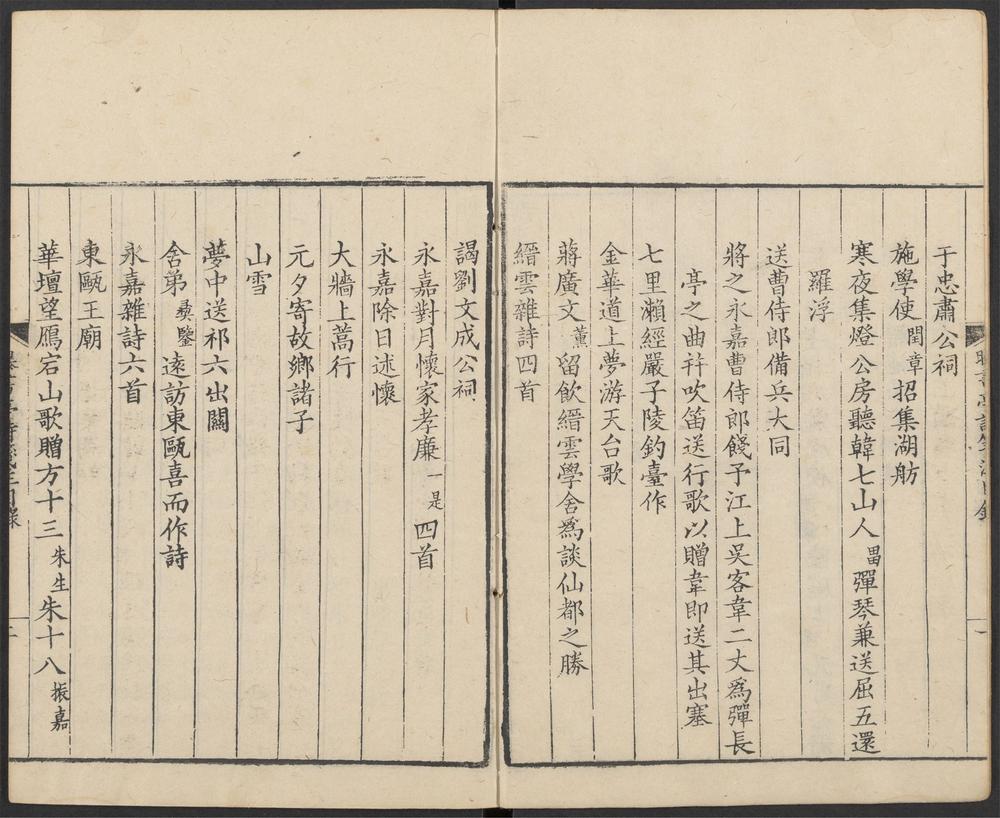 于忠肅公祠
施學使閏章招集湖舫
寒夜集燈公房聽韓七山人畕彈琴兼送屈五還
羅浮
送曹侍郎備兵大同
將之永嘉曹侍郎餞予江上吳客韋二丈爲彈長
亭之曲幷吹笛送行歌以贈韋即送其出塞
七里瀨經嚴子陵釣臺作
金華道上夢游天台歌
蔣廣文薰留飲縉雲學舍爲談仙都之勝
縉雲雜詩四首
謁劉文成公祠
永嘉對月懷家孝廉一是四首
永嘉除日述懷
大牆上蒿行
元夕寄故鄉諸子
山雪
夢中送祁六出關
舍弟彝鑒遠訪東甌喜而作詩
永嘉雜詩六首
東甌王廟
華壇望鴈宕山歌贈方十三朱生朱十八振嘉